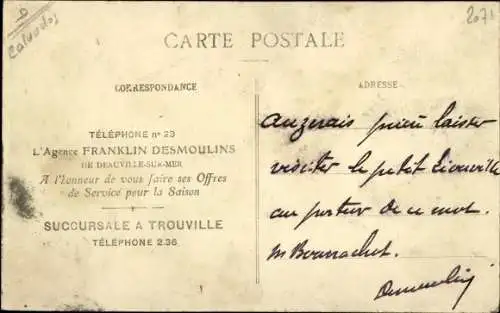 D
Calvados
2071
CARTE POSTALE
CORRESPONDANCE
ADRESSE
TÉLÉPHONE nº 23
L'Agence FRANKLIN DESMOULINS
DE DEAUVILLE-SUR-MER
A l'honneur de vous faire ses Offres
de Service pour la Saison
SUCCURSALE A TROUVILLE
TÉLÉPHONE 2.36
prière laisser
visiter le petit
au porteur de ce mot.